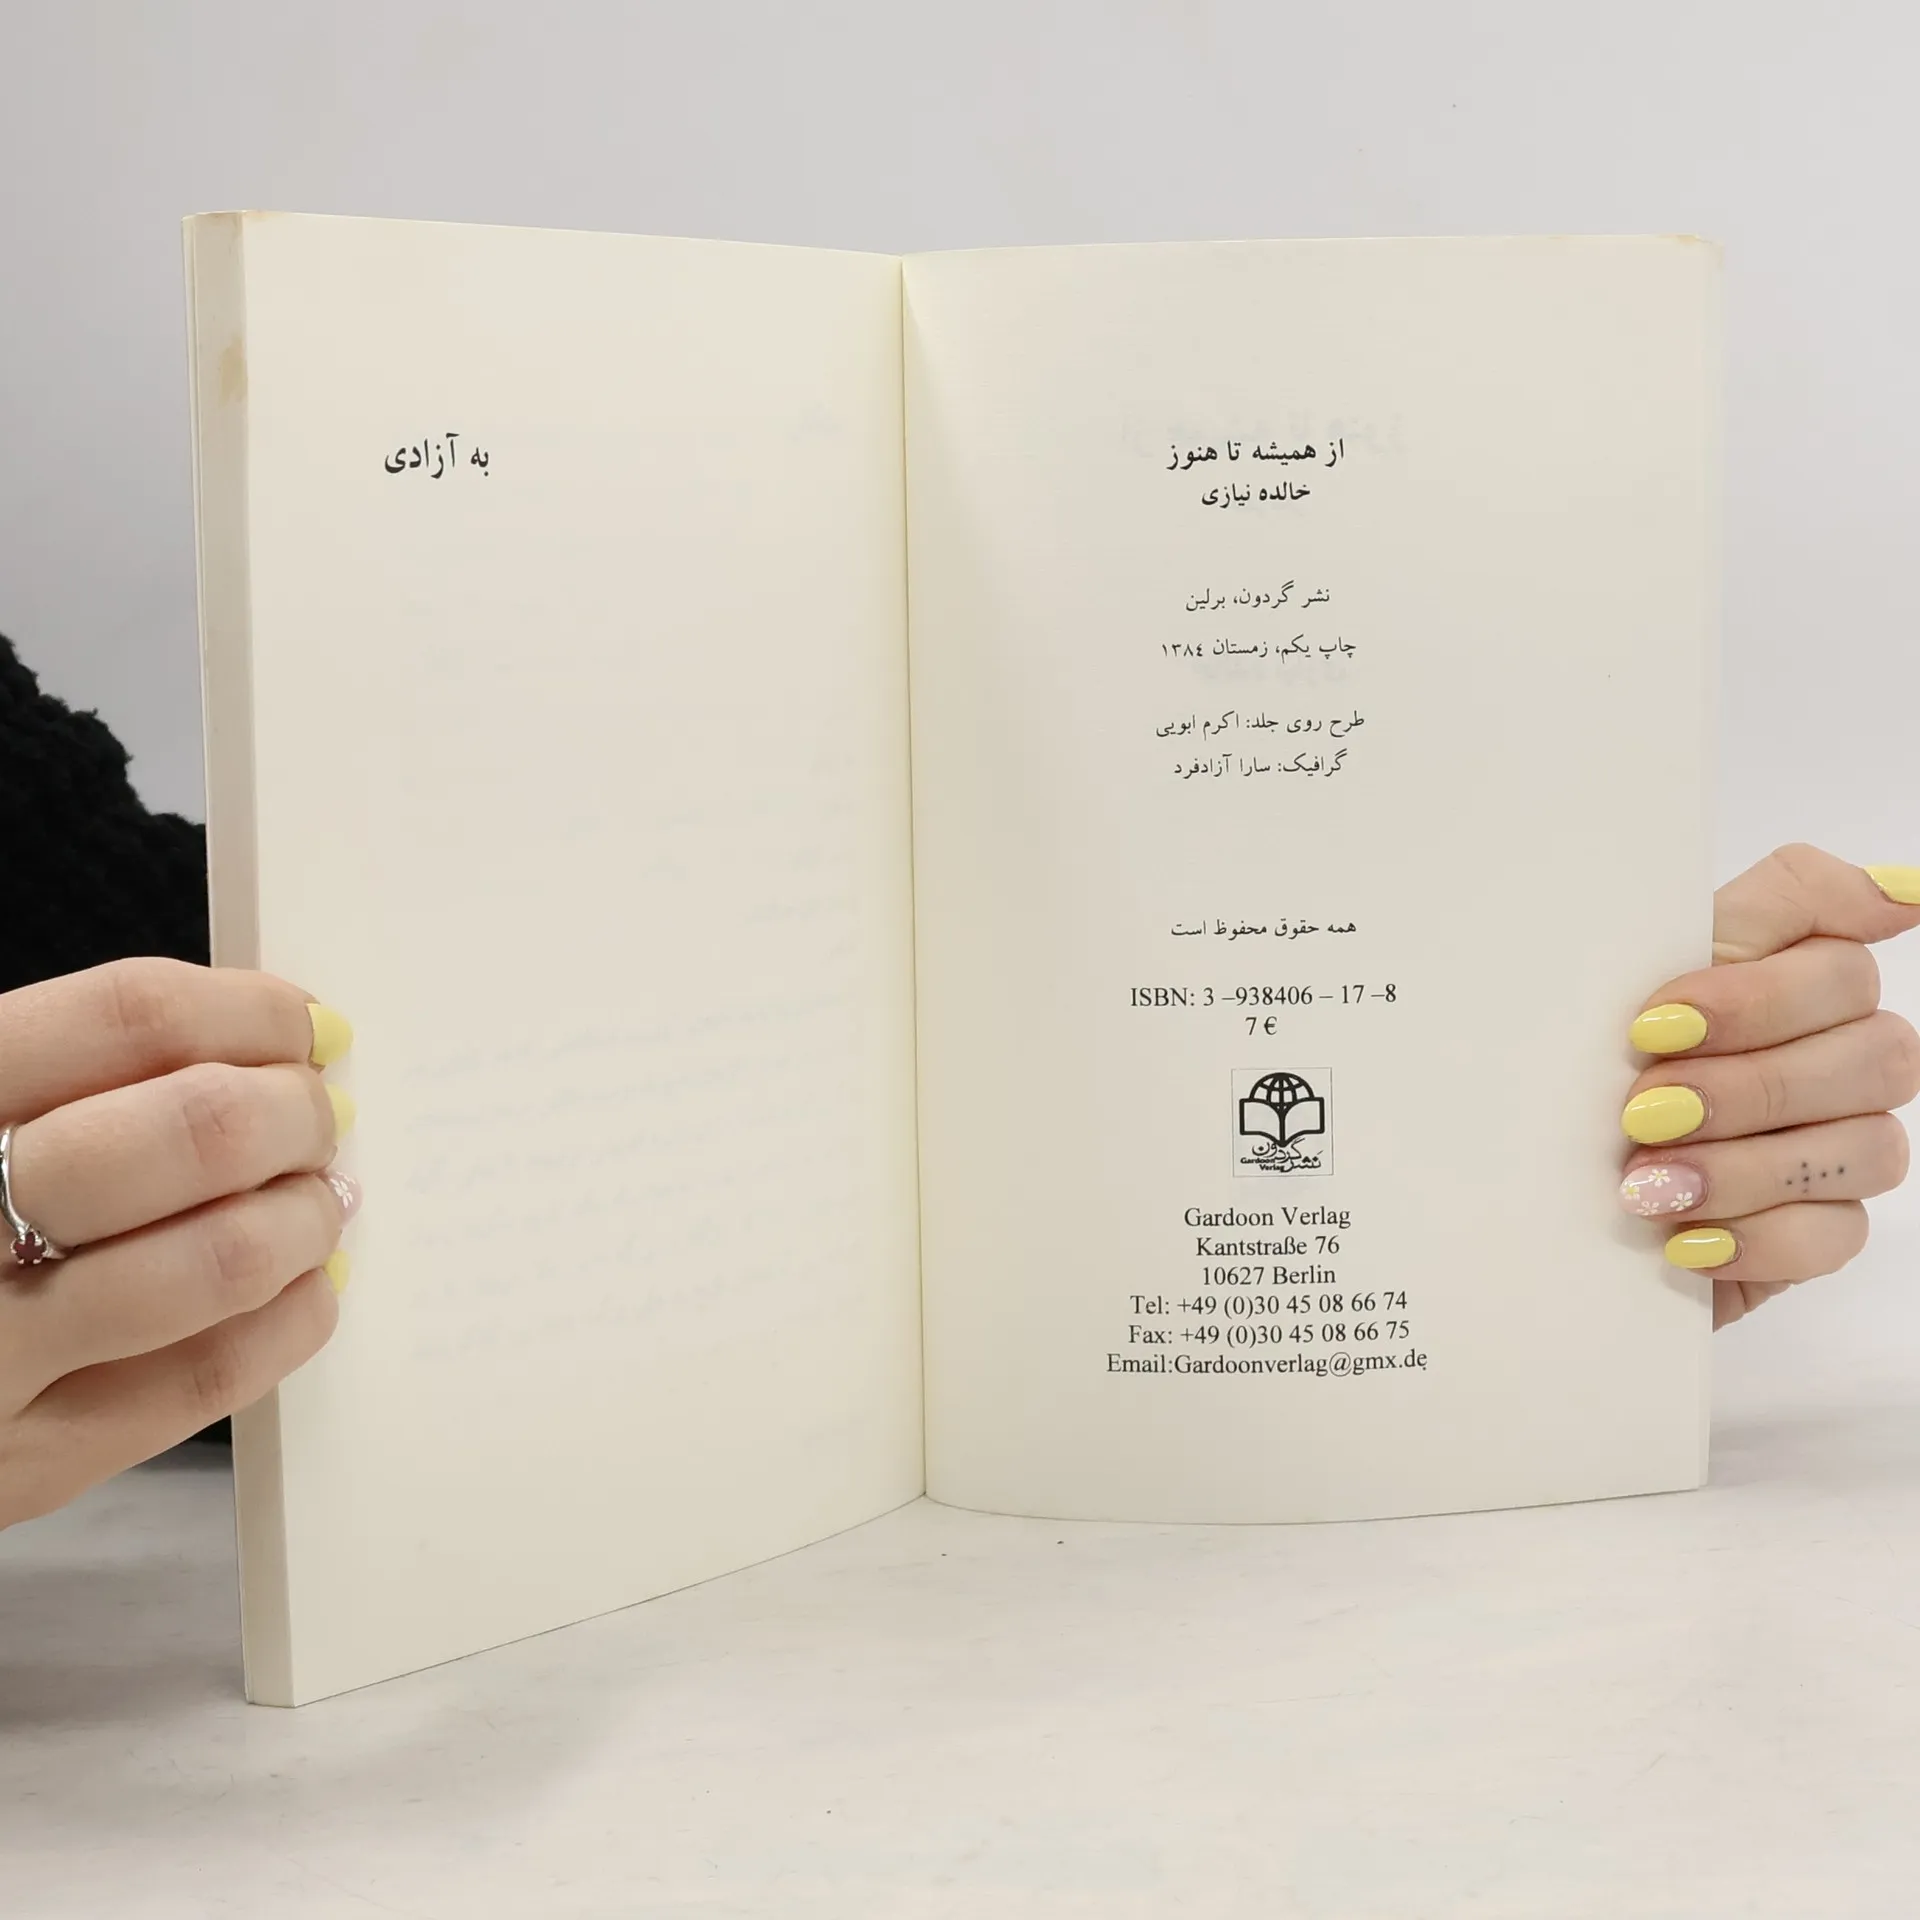 از همیشه تا هنوز
خالده نیازی
نشر گردون، برلین
چاپ یکم، زمستان ١٣٨٤
طرح روی جلد: اکرم ابویی
گرافیک: سارا آزادفرد
همه حقوق محفوظ است
ISBN: 3 –938406 – 17 –8
7 €
نشر گردون
Gardoon
Verlag
Gardoon Verlag
Kantstraße 76
10627 Berlin
Tel: +49 (0)30 45 08 66 74
Fax: +49 (0)30 45 08 66 75
Email:Gardoonverlag@gmx.de
به آزادی